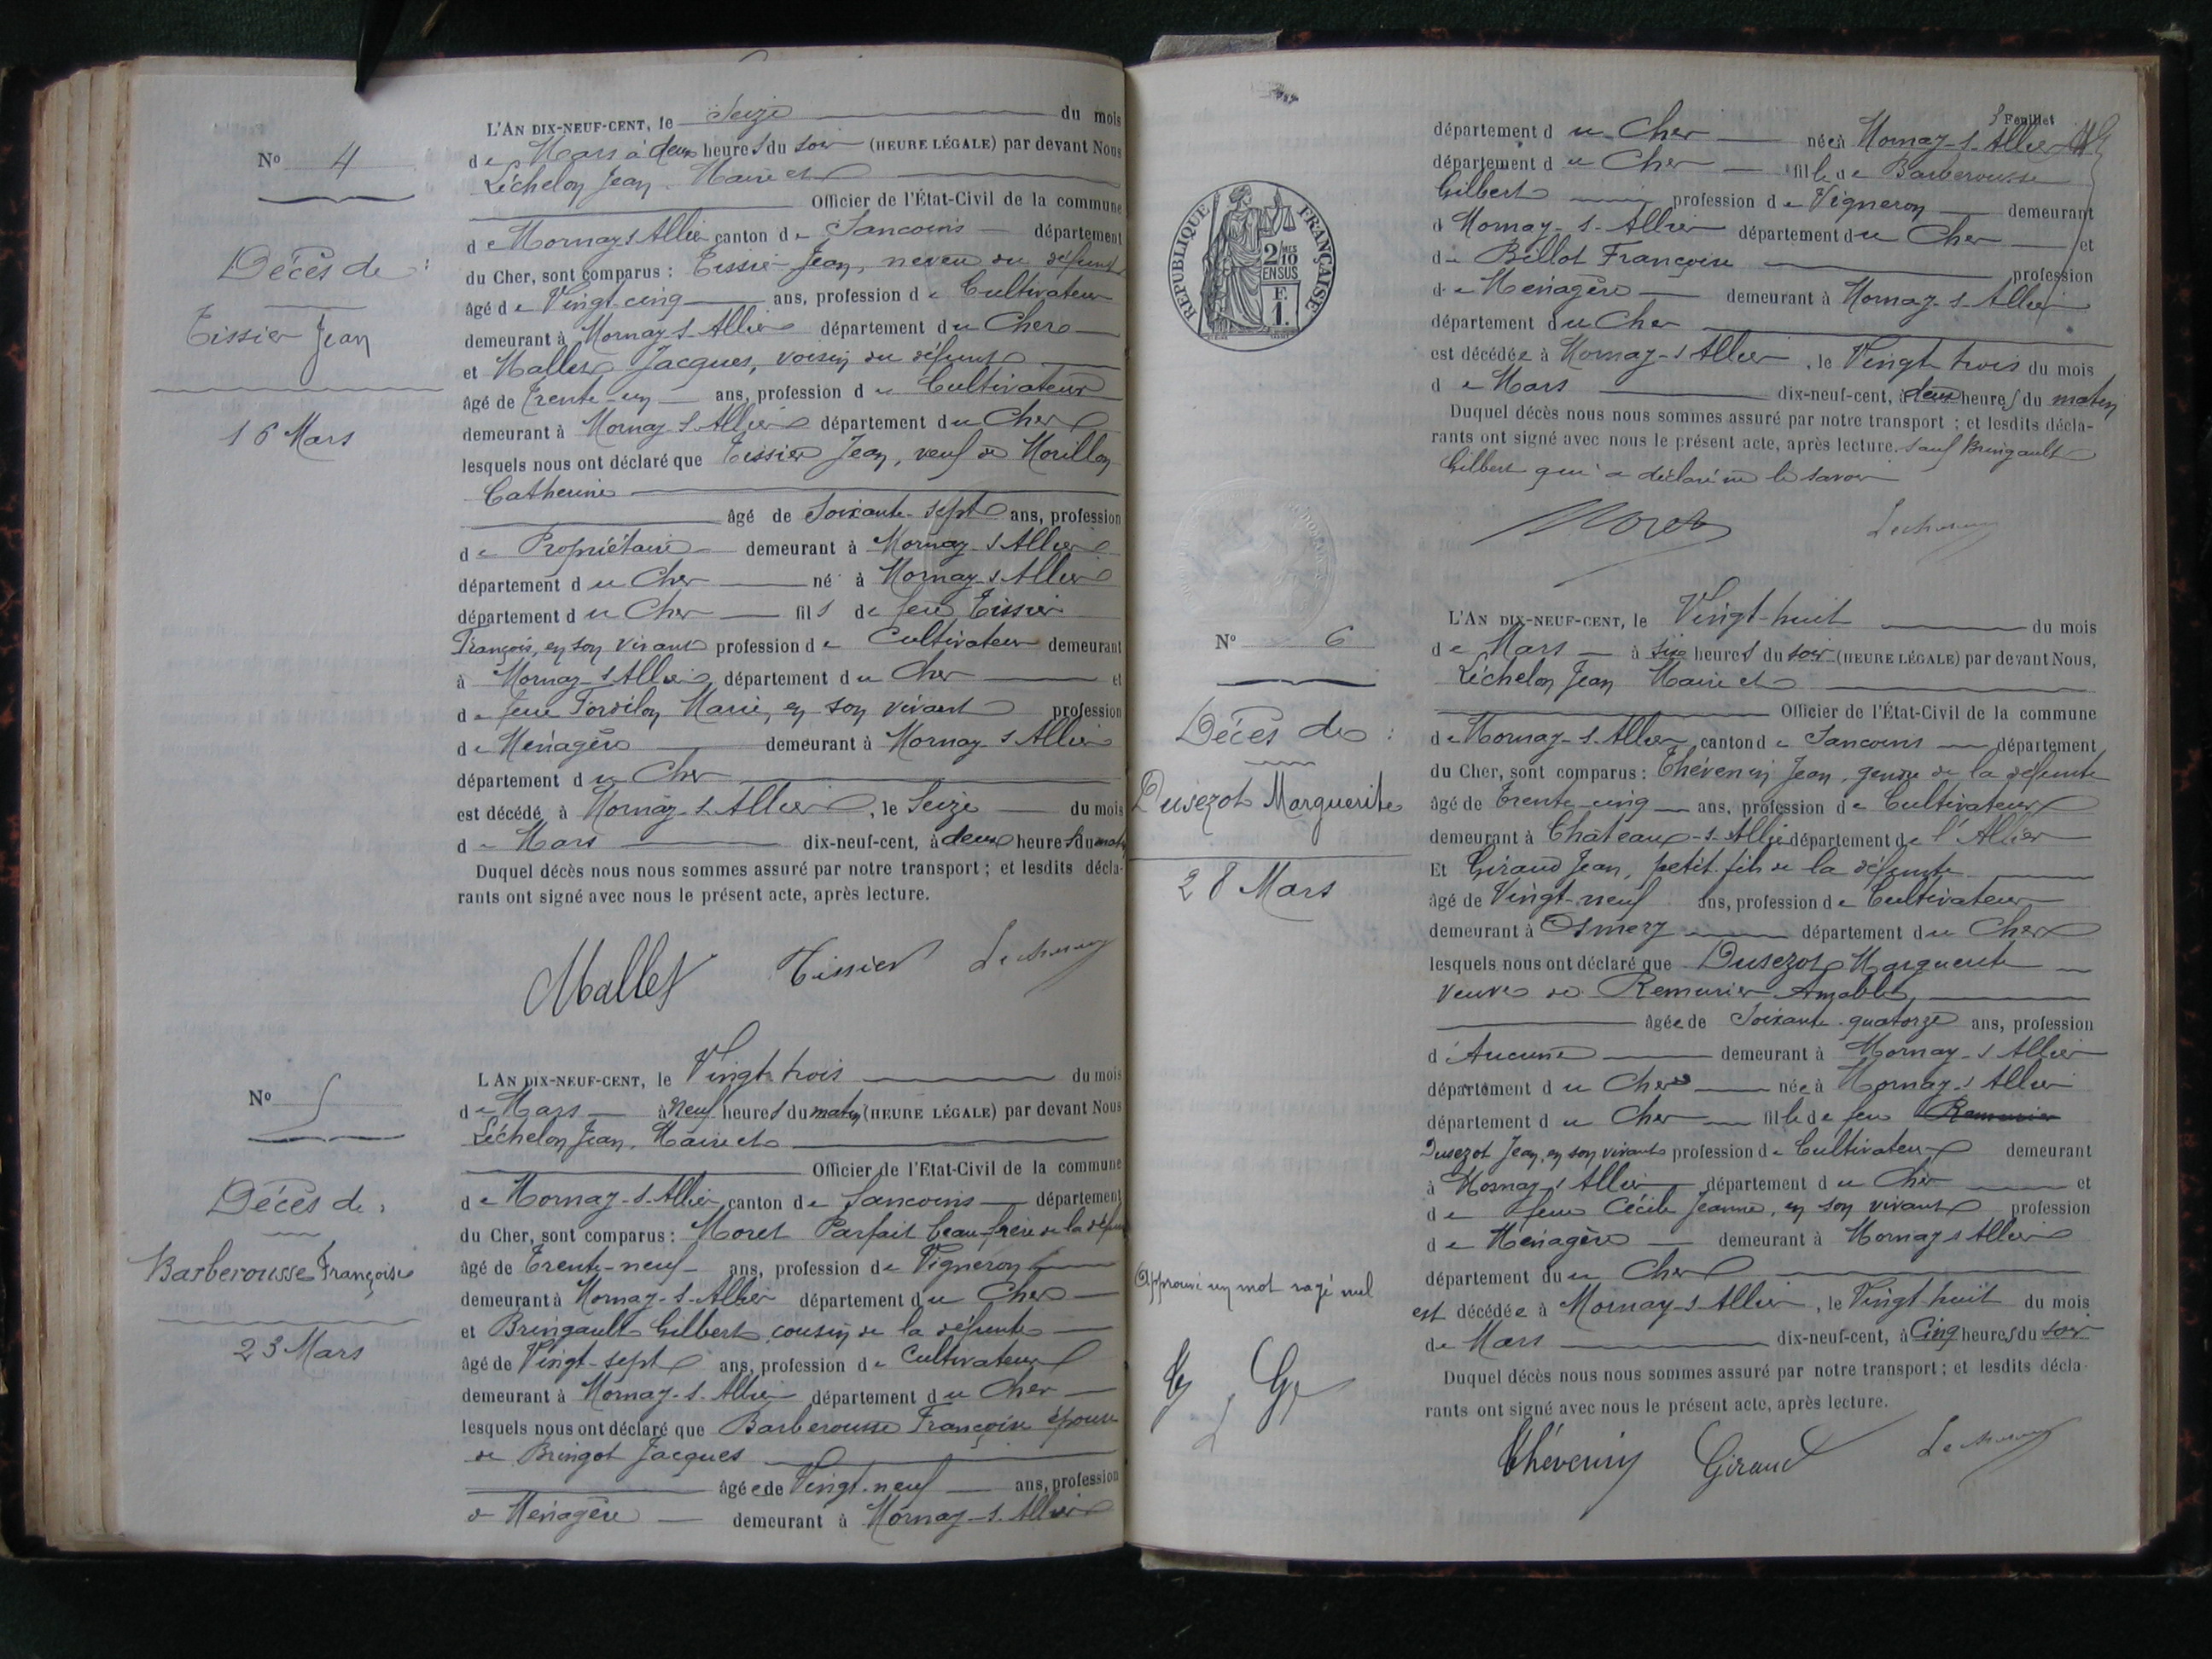 N° 4
Décès de :
Tissier Jean
16 Mars
L'AN DIX-NEUF-CENT, le Seize du mois
de Mars à deux heures du soir (HEURE LÉGALE) par devant Nous
Léchelon Jean, Maire et
Officier de l'État-Civil de la commune
de Mornay s Allier canton de Sancoins département
du Cher, sont comparus : Tissier Jean, neveu du défunt
âgé de Vingt-cinq ans, profession de Cultivateur
demeurant à Mornay-s-Allier département du Cher
et Mallet Jacques, voisin du défunt
âgé de Trente-un ans, profession de Cultivateur
demeurant à Mornay-s-Allier département du Cher
lesquels nous ont déclaré que Tissier Jean, veuf de Morillon
Catherine
âgé de Soixante-sept ans, profession
de Propriétaire demeurant à Mornay-s-Allier
département du Cher né à Mornay-s-Allier
département du Cher fils de feu Tissier
François, en son vivant profession de Cultivateur demeurant
à Mornay-s-Allier département du Cher et
de feue Marie, en son vivant profession
de Ménagère demeurant à Mornay-s-Allier
département du Cher
est décédé à Mornay-s-Allier, le Seize du mois
de Mars dix-neuf-cent, à deux heures du matin
Duquel décès nous nous sommes assuré par notre transport ; et lesdits décla-
rants ont signé avec nous le présent acte, après lecture.
Mallet Tissier
N° 5
Décès de :
Barberousse Françoise
23 Mars
L'AN DIX-NEUF-CENT, le Vingt-trois du mois
de Mars à Neuf heures du matin (HEURE LÉGALE) par devant Nous
Léchelon Jean, Maire et
Officier de l'État-Civil de la commune
de Mornay-s-Allier canton de Sancoins département
du Cher, sont comparus : Moret Parfait beau-frère de la défunte
âgé de Trente-neuf ans, profession de Vigneron
demeurant à Mornay-s-Allier département du Cher
et Bringault Gilbert, cousin de la défunte
âgé de Vingt-sept ans, profession de Cultivateur
demeurant à Mornay-s-Allier département du Cher
lesquels nous ont déclaré que Barberousse Françoise épouse
de Bringot Jacques
âgée de Vingt-neuf ans, profession
de Ménagère demeurant à Mornay-s-Allier
Feuillet
département du Cher née à Mornay-s-Allier
département du Cher fille de Barberousse
Gilbert profession de Vigneron demeurant
à Mornay-s-Allier département du Cher et
de Billot Françoise profession
de Ménagère demeurant à Mornay-s-Allier
département du Cher
est décédée à Mornay-s-Allier, le Vingt trois du mois
de Mars dix-neuf-cent, à deux heures du matin
Duquel décès nous nous sommes assuré par notre transport ; et lesdits décla-
rants ont signé avec nous le présent acte, après lecture. sauf Bringault
Gilbert qui a déclaré ne le savoir
Moret
RÉPUBLIQUE FRANÇAISE
2/10 MES
EN SUS
F.
1.
N° 6
Décès de :
Dusezot Marguerite
28 Mars
L'AN DIX-NEUF-CENT, le Vingt-huit du mois
de Mars à six heures du soir (HEURE LÉGALE) par devant Nous,
Léchelon Jean Maire et
Officier de l'État-Civil de la commune
de Mornay-s-Allier canton de Sancoins département
du Cher, sont comparus : Thévenin Jean, gendre de la défunte
âgé de Trente-cinq ans, profession de Cultivateur
demeurant à Château-s-Allier département de l'Allier
Et Giraud Jean, petit-fils de la défunte
âgé de Vingt-neuf ans, profession de Cultivateur
demeurant à Osmery département du Cher
lesquels nous ont déclaré que Dusezot Marguerite
veuve de Remurier Amable,
âgée de Soixante-quatorze ans, profession
d'Aucune demeurant à Mornay-s-Allier
département du Cher née à Mornay-s-Allier
département du Cher fille de feu Remurier
Dusezot Jean, en son vivant profession de Cultivateur demeurant
à Mornay-s-Allier département du Cher et
de feue Cécile Jeanne, en son vivant profession
de Ménagère demeurant à Mornay s Allier
département du Cher
est décédée à Mornay-s-Allier, le Vingt huit du mois
de Mars dix-neuf-cent, à Cinq heures du soir
Duquel décès nous nous sommes assuré par notre transport ; et lesdits décla-
rants ont signé avec nous le présent acte, après lecture.
Approuvé un mot rayé nul
Thévenin Giraud